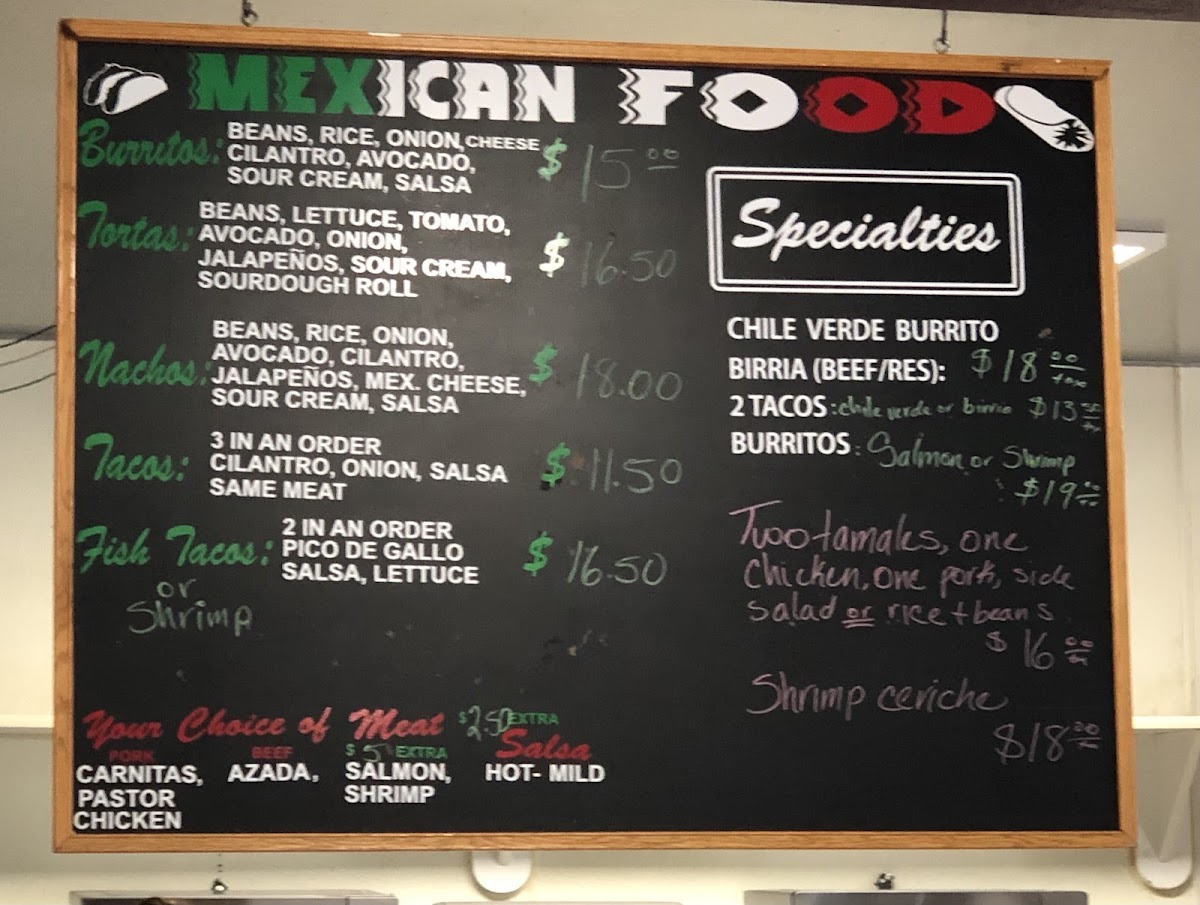 MEXICAN FOOD
Burritos: BEANS, RICE, ONION, CHEESE $ 15.00
CILANTRO, AVOCADO,
SOUR CREAM, SALSA
Tortas: BEANS, LETTUCE, TOMATO,
AVOCADO, ONION, $ 16.50
JALAPEÑOS, SOUR CREAM,
SOURDOUGH ROLL
Nachos: BEANS, RICE, ONION,
AVOCADO, CILANTRO, $ 18.00
JALAPEÑOS, MEX. CHEESE,
SOUR CREAM, SALSA
Tacos: 3 IN AN ORDER
CILANTRO, ONION, SALSA $ 11.50
SAME MEAT
Fish Tacos: 2 IN AN ORDER
PICO DE GALLO $ 16.50
SALSA, LETTUCE
or
Shrimp
Your Choice of Meat $2.50 EXTRA
PORK BEEF $ 5 EXTRA Salsa
CARNITAS, AZADA, SALMON, HOT- MILD
PASTOR SHRIMP
CHICKEN
Specialties
CHILE VERDE BURRITO
BIRRIA (BEEF/RES): $18.00 + tax
2 TACOS: chile verde or birria $13.50
BURRITOS: Salmon or Shrimp
$19.00
Two tamales, one
Chicken, one pork, side
Salad or rice + beans
$ 16.00
Shrimp ceviche
$18.00